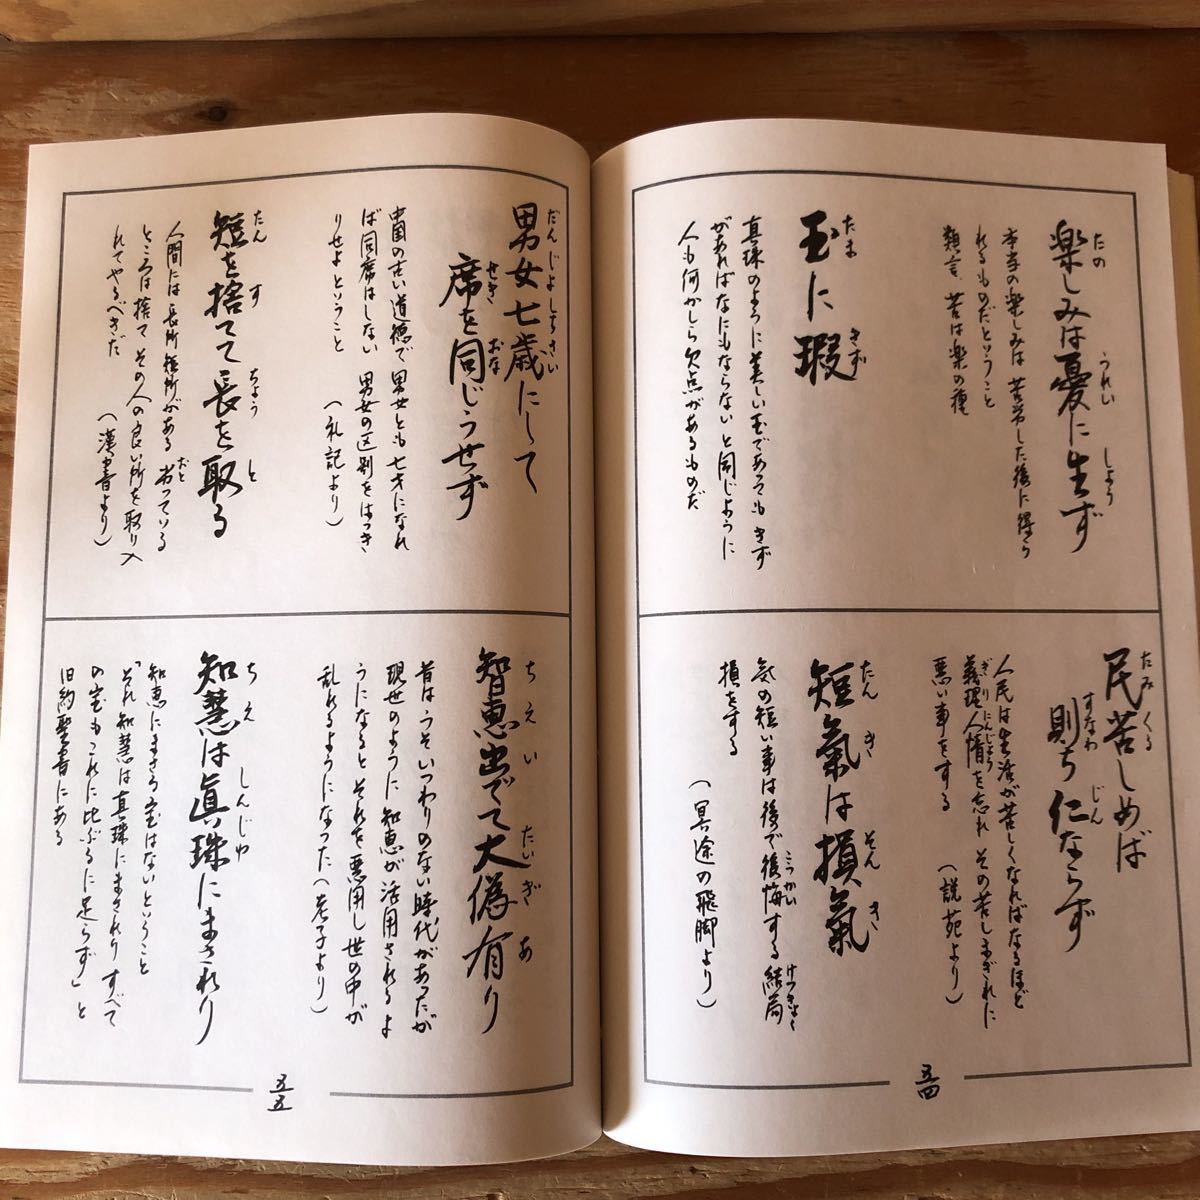 楽しみは憂に生ず
たの うれい しょう
本当の楽しみは 苦労した後に得ら
れるものだということ
類言 苦は楽の種
玉に瑕
たま きず
真珠のように美しい玉であっても きず
があればなにもならない と同じように
人も何かしら欠点があるものだ
民苦しめば
たみ くる
則ち仁ならず
すなわ じん
人民は生活が苦しくなればなるほど
義理人情を忘れ その苦しまぎれに
ぎりにんじょう
悪い事をする
(説苑より)
短氣は損氣
たん き そん き
気の短い事は後で後悔する 結局
こうかい けっきょく
損をする
(冥途の飛脚より)
五四
男女七歳にして
だんじょしちさい
席を同じうせず
せき おな
中国の古い道徳で 男女とも七才になれ
ば同席はしない 男女の区別をはっき
りせよということ
(礼記より)
短を捨てて長を取る
たん す ちょう と
人間には長所短所がある 劣っている
おと
ところは捨て その人の良い所を取り入
れてやるべきだ
(漢書より)
智恵出でて大偽有り
ちえい たいぎ あ
昔はうそいつわりのない時代があったが
現世のように 知恵が活用されるよ
うになると それを悪用し世の中が
乱れるようになった(老子より)
知慧は眞珠にまされり
ちえ しんじゅ
知恵にまさる宝はないということ
「それ知慧は真珠にまされり すべて
の宝もこれに比ぶるに足らず」と
旧約聖書にある
五五